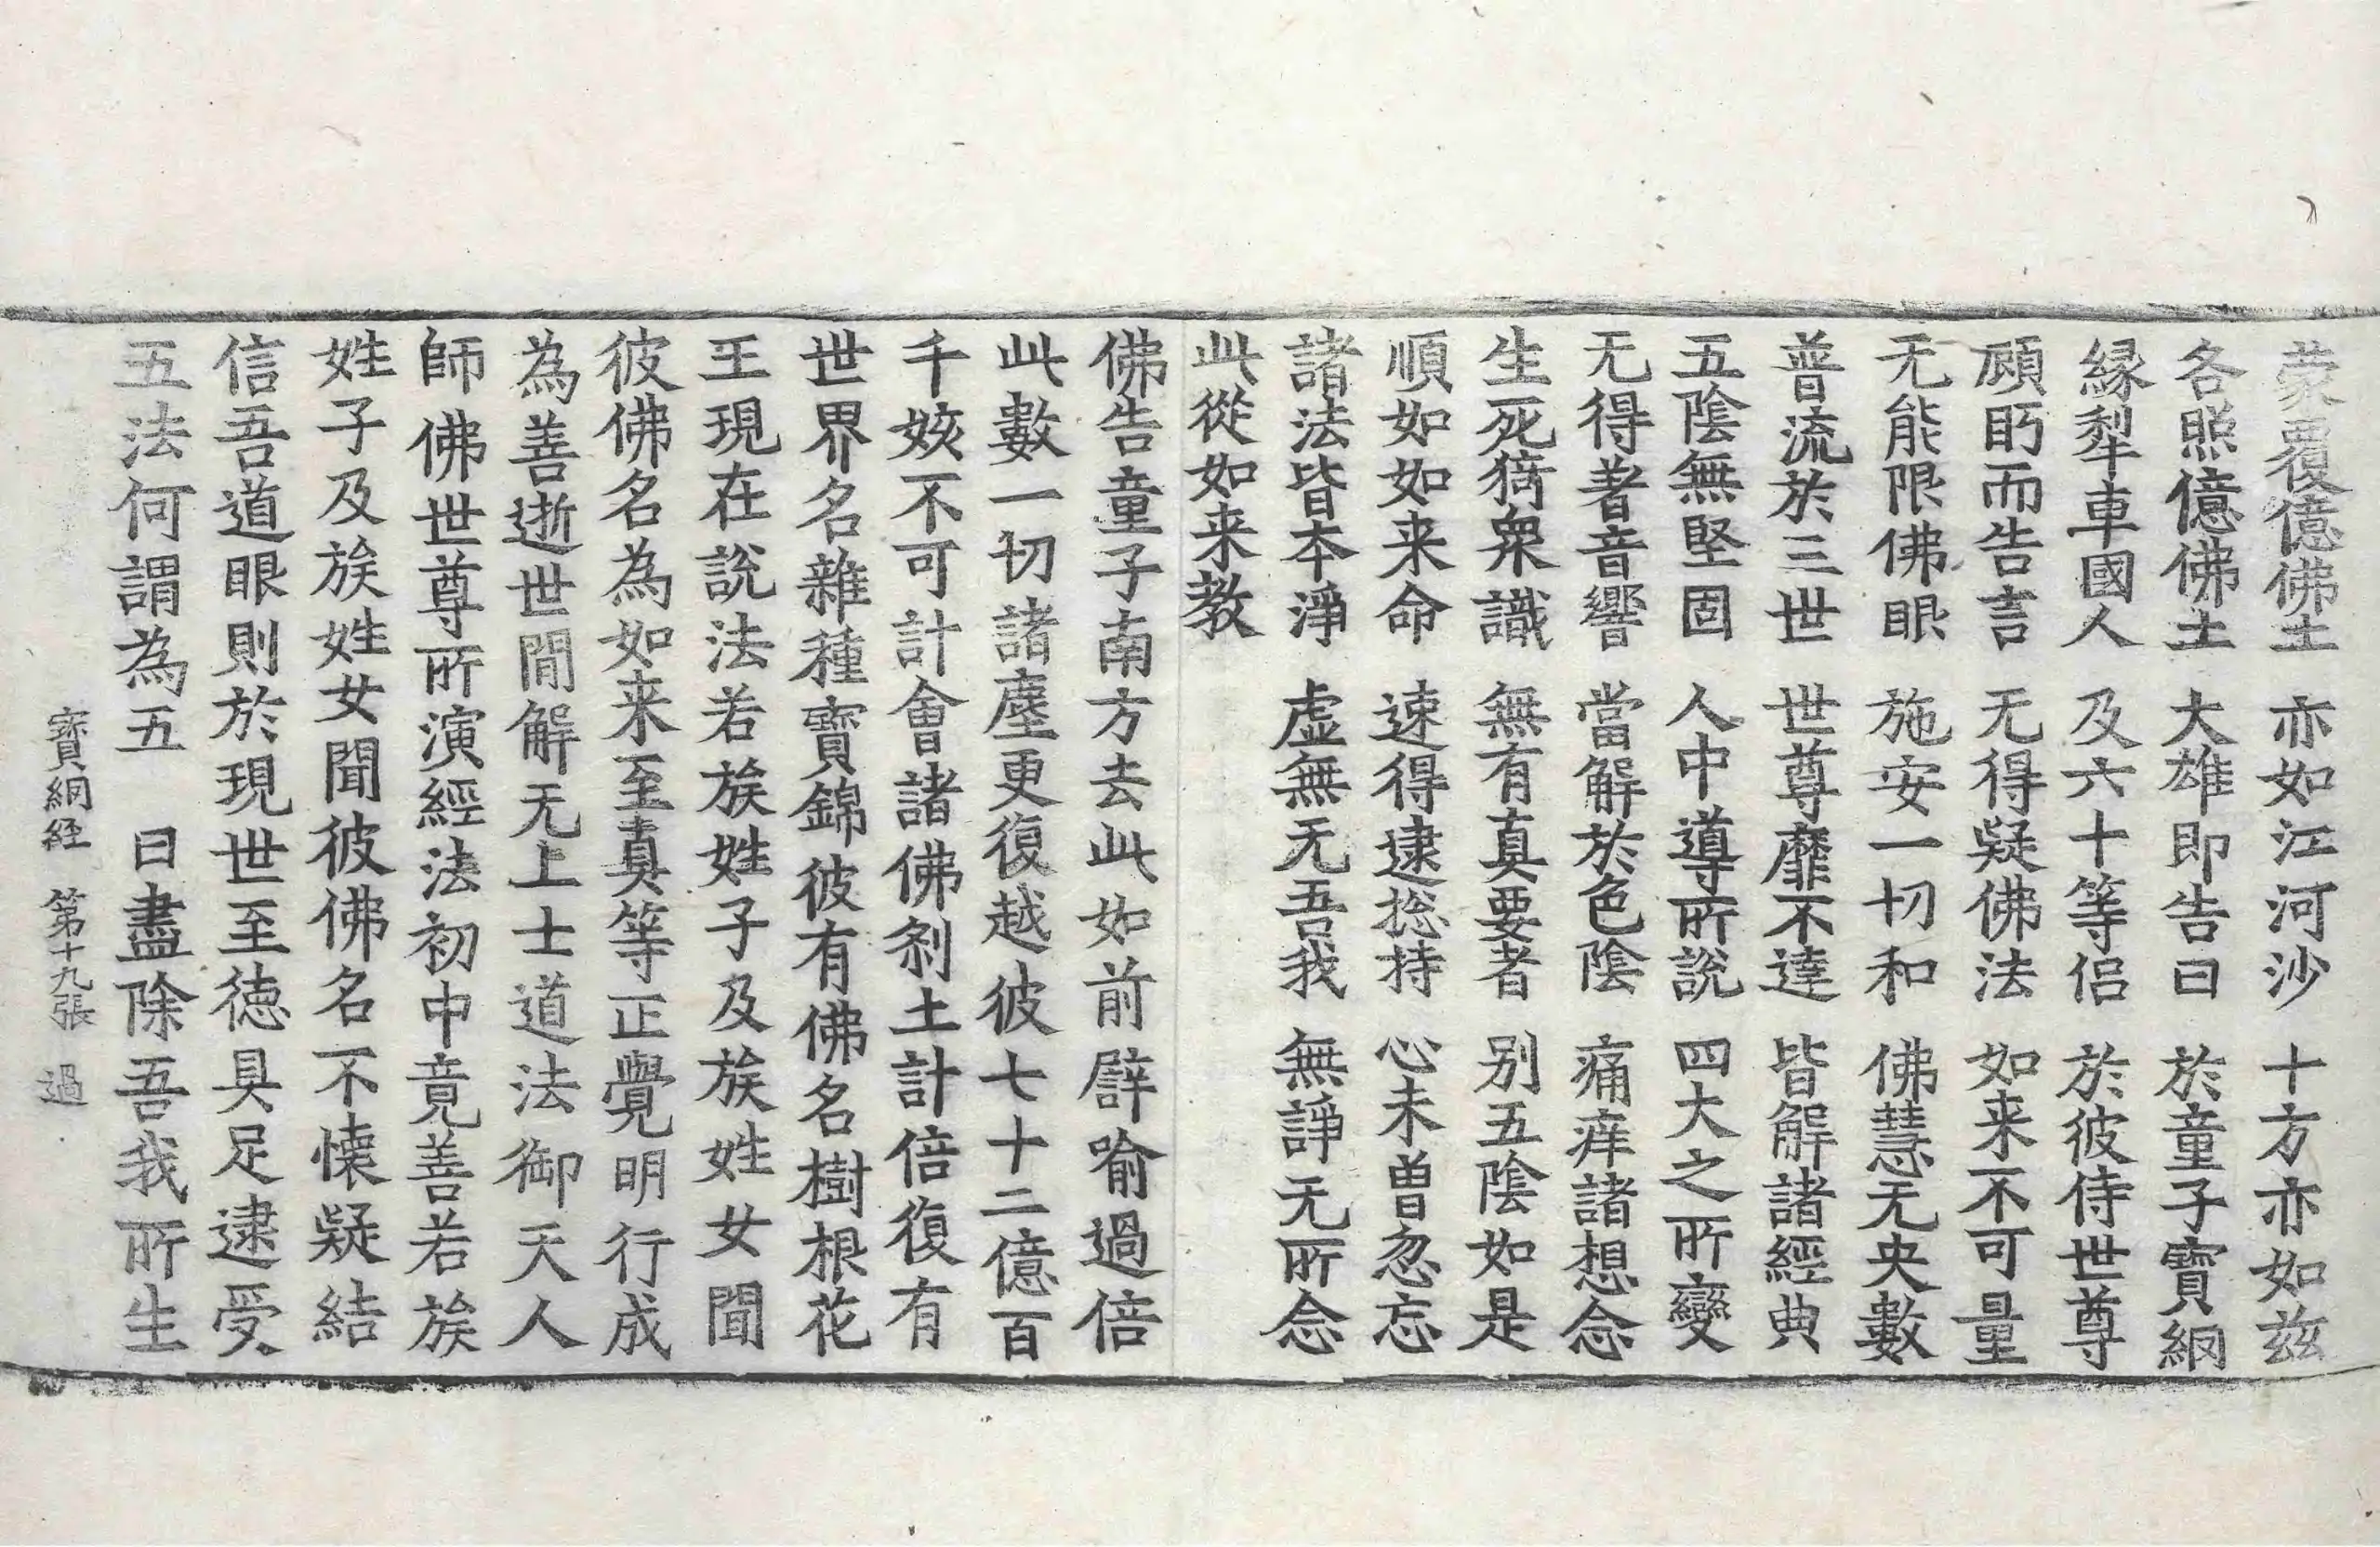 蒙覆億佛土　亦如江河沙　十方亦如兹
各照億佛土　大雄即告曰　於童子寶網
縁犁車國人　及六十等侣　於彼侍世尊
頋眄而告言　无得疑佛法　如来不可量
无能限佛眼　施安一切和　佛慧无央數
普流於三世　世尊靡不達　皆解諸經典
五陰無堅固　人中導所說　四大之所變
无得著音響　當解於色陰　痛痒諸想念
生死猗衆識　無有真要者　别五陰如是
順如如来命　速得逮捴持　心未曽忽忘
諸法皆本淨　虚無无吾我　無諍无所念
此從如来教
佛告童子南方去此如前譬喻過倍
此數一切諸塵更復越彼七十二億百
千姟不可計會諸佛刹土計倍復有
世界名雜種寶錦彼有佛名樹根花
王現在說法若族姓子及族姓女聞
彼佛名為如来至真等正覺明行成
為善逝世間解无上士道法御天人
師佛世尊所演經法初中竟善若族
姓子及族姓女聞彼佛名不懐疑結
信吾道眼則於現世至徳具足逮受
五法何謂為五　曰盡除吾我所生
寶網経　第十九張　過